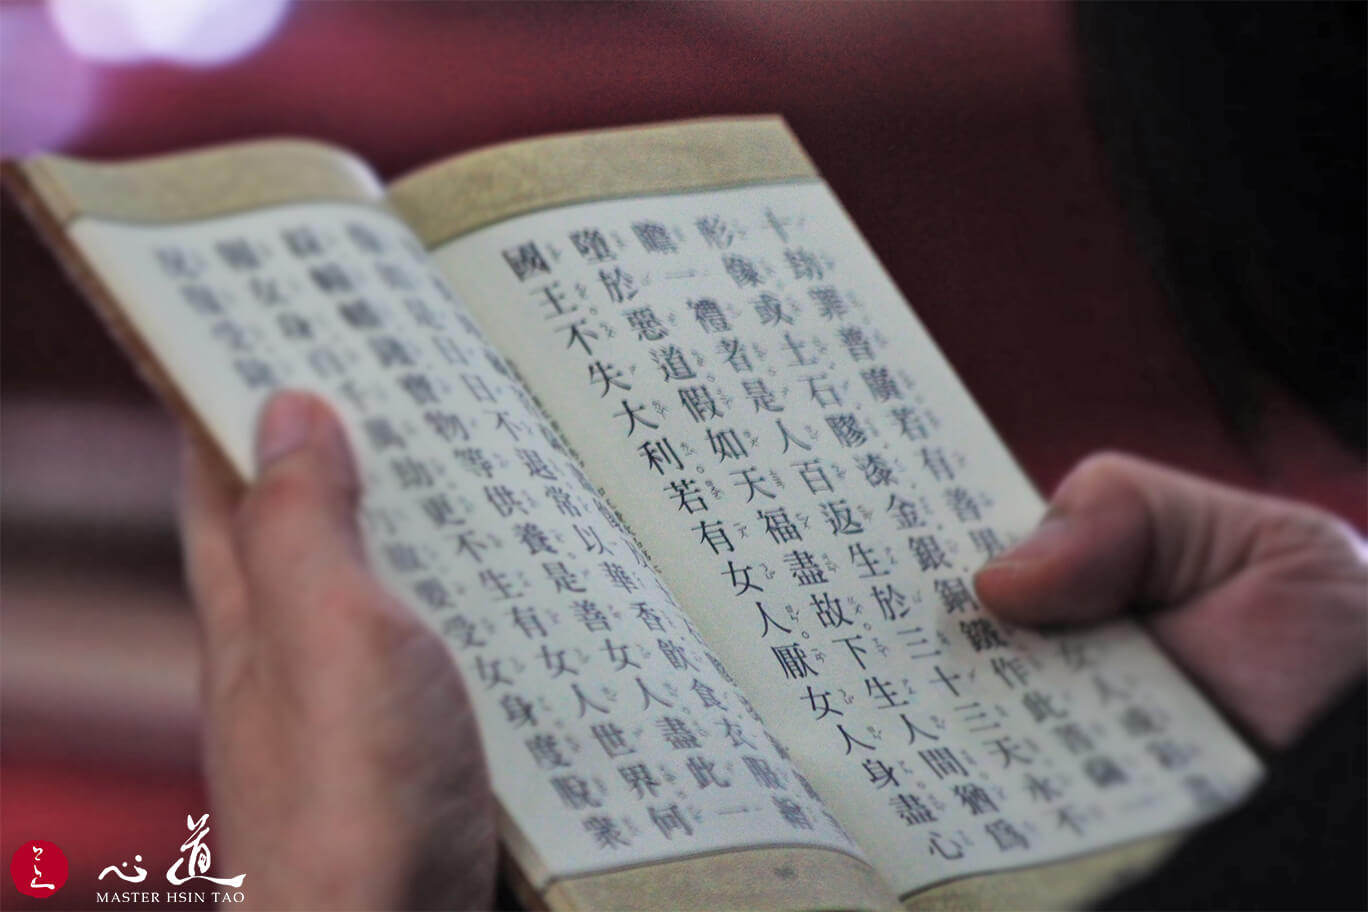 十劫罪普廣若有善男女人或彩
形像或土石膠漆金銀銅鐵作此菩薩一
瞻一禮者是人百返生於三十三天永不
墮於惡道假如天福盡故下生人間猶為
國王不失大利若有女人厭女人身盡心
是日日不退常以華香飲食衣服繒
錢寶物等供養是善女人盡此一
報女身百千萬劫更不生有女人世界何
況復受除故要受女身度脫眾
心道
MASTER HSIN TAO